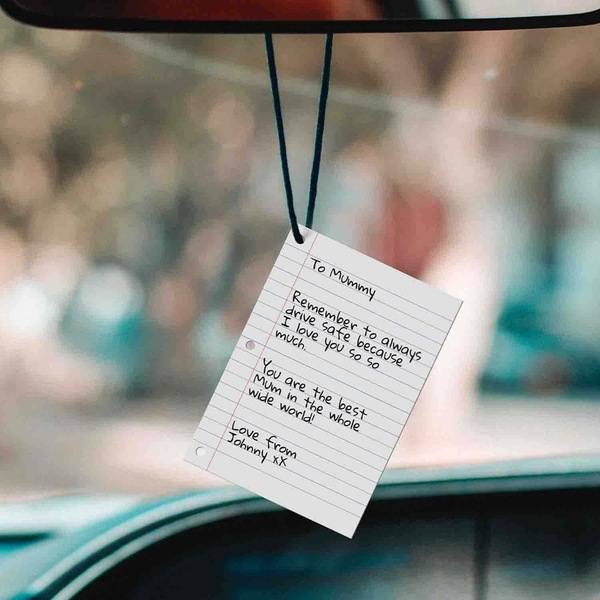 To Mummy
Remember to always
drive safe because
I love you so so
much.
You are the best
Mum in the whole
wide world!
Love from
Johnny xX